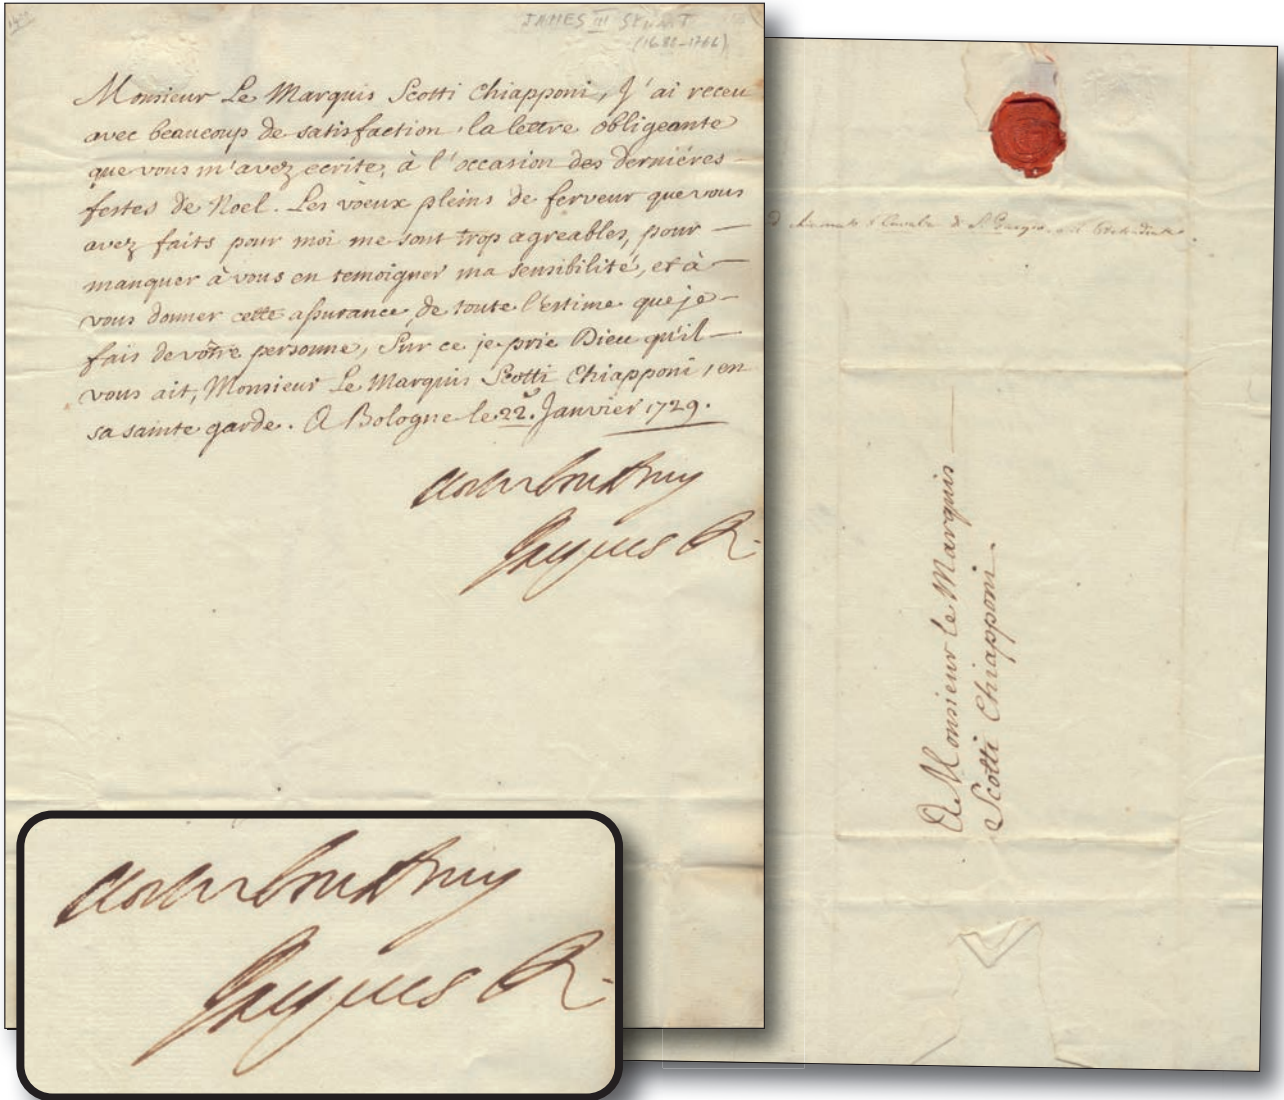 JAMES III STUART
(1688-1766)
Monsieur Le Marquis Scotti Chiapponi, J'ai receu
avec beaucoup de satisfaction la lettre obligeante
que vous m'avez ecrite, à l'occasion des derniéres
festes de Noel. Les voeux pleins de ferveur que vous
avez faits pour moi me sont trop agreables, pour
manquer à vous en temoigner ma sensibilité, et à
vous donner cette assurance, de toute l'estime que je
fais de vôtre personne, Sur ce je prie Dieu qu'il
vous ait, Monsieur Le Marquis Scotti Chiapponi, en
sa sainte garde. A Bologne le 22. Janvier 1729.
Jaques R.
A Monsieur le Marquis
Scotti Chiapponi.
Jaques R.